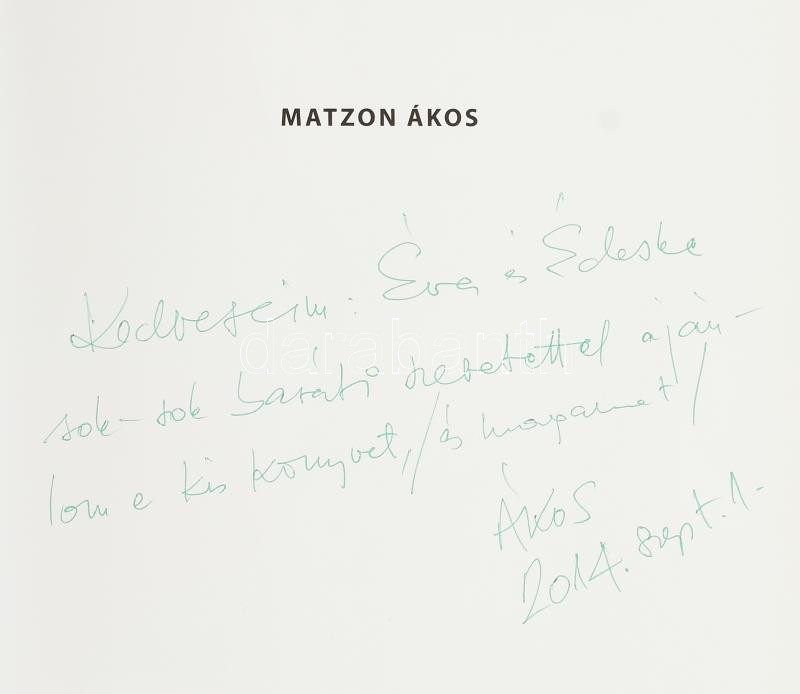 MATZON ÁKOS
Kedveseim: Éva és Édeske
sok-sok baráti szeretettel aján-
lom e kis könyvet, /és magamat/
ÁKOS
2014. szept. 1.
darabanth